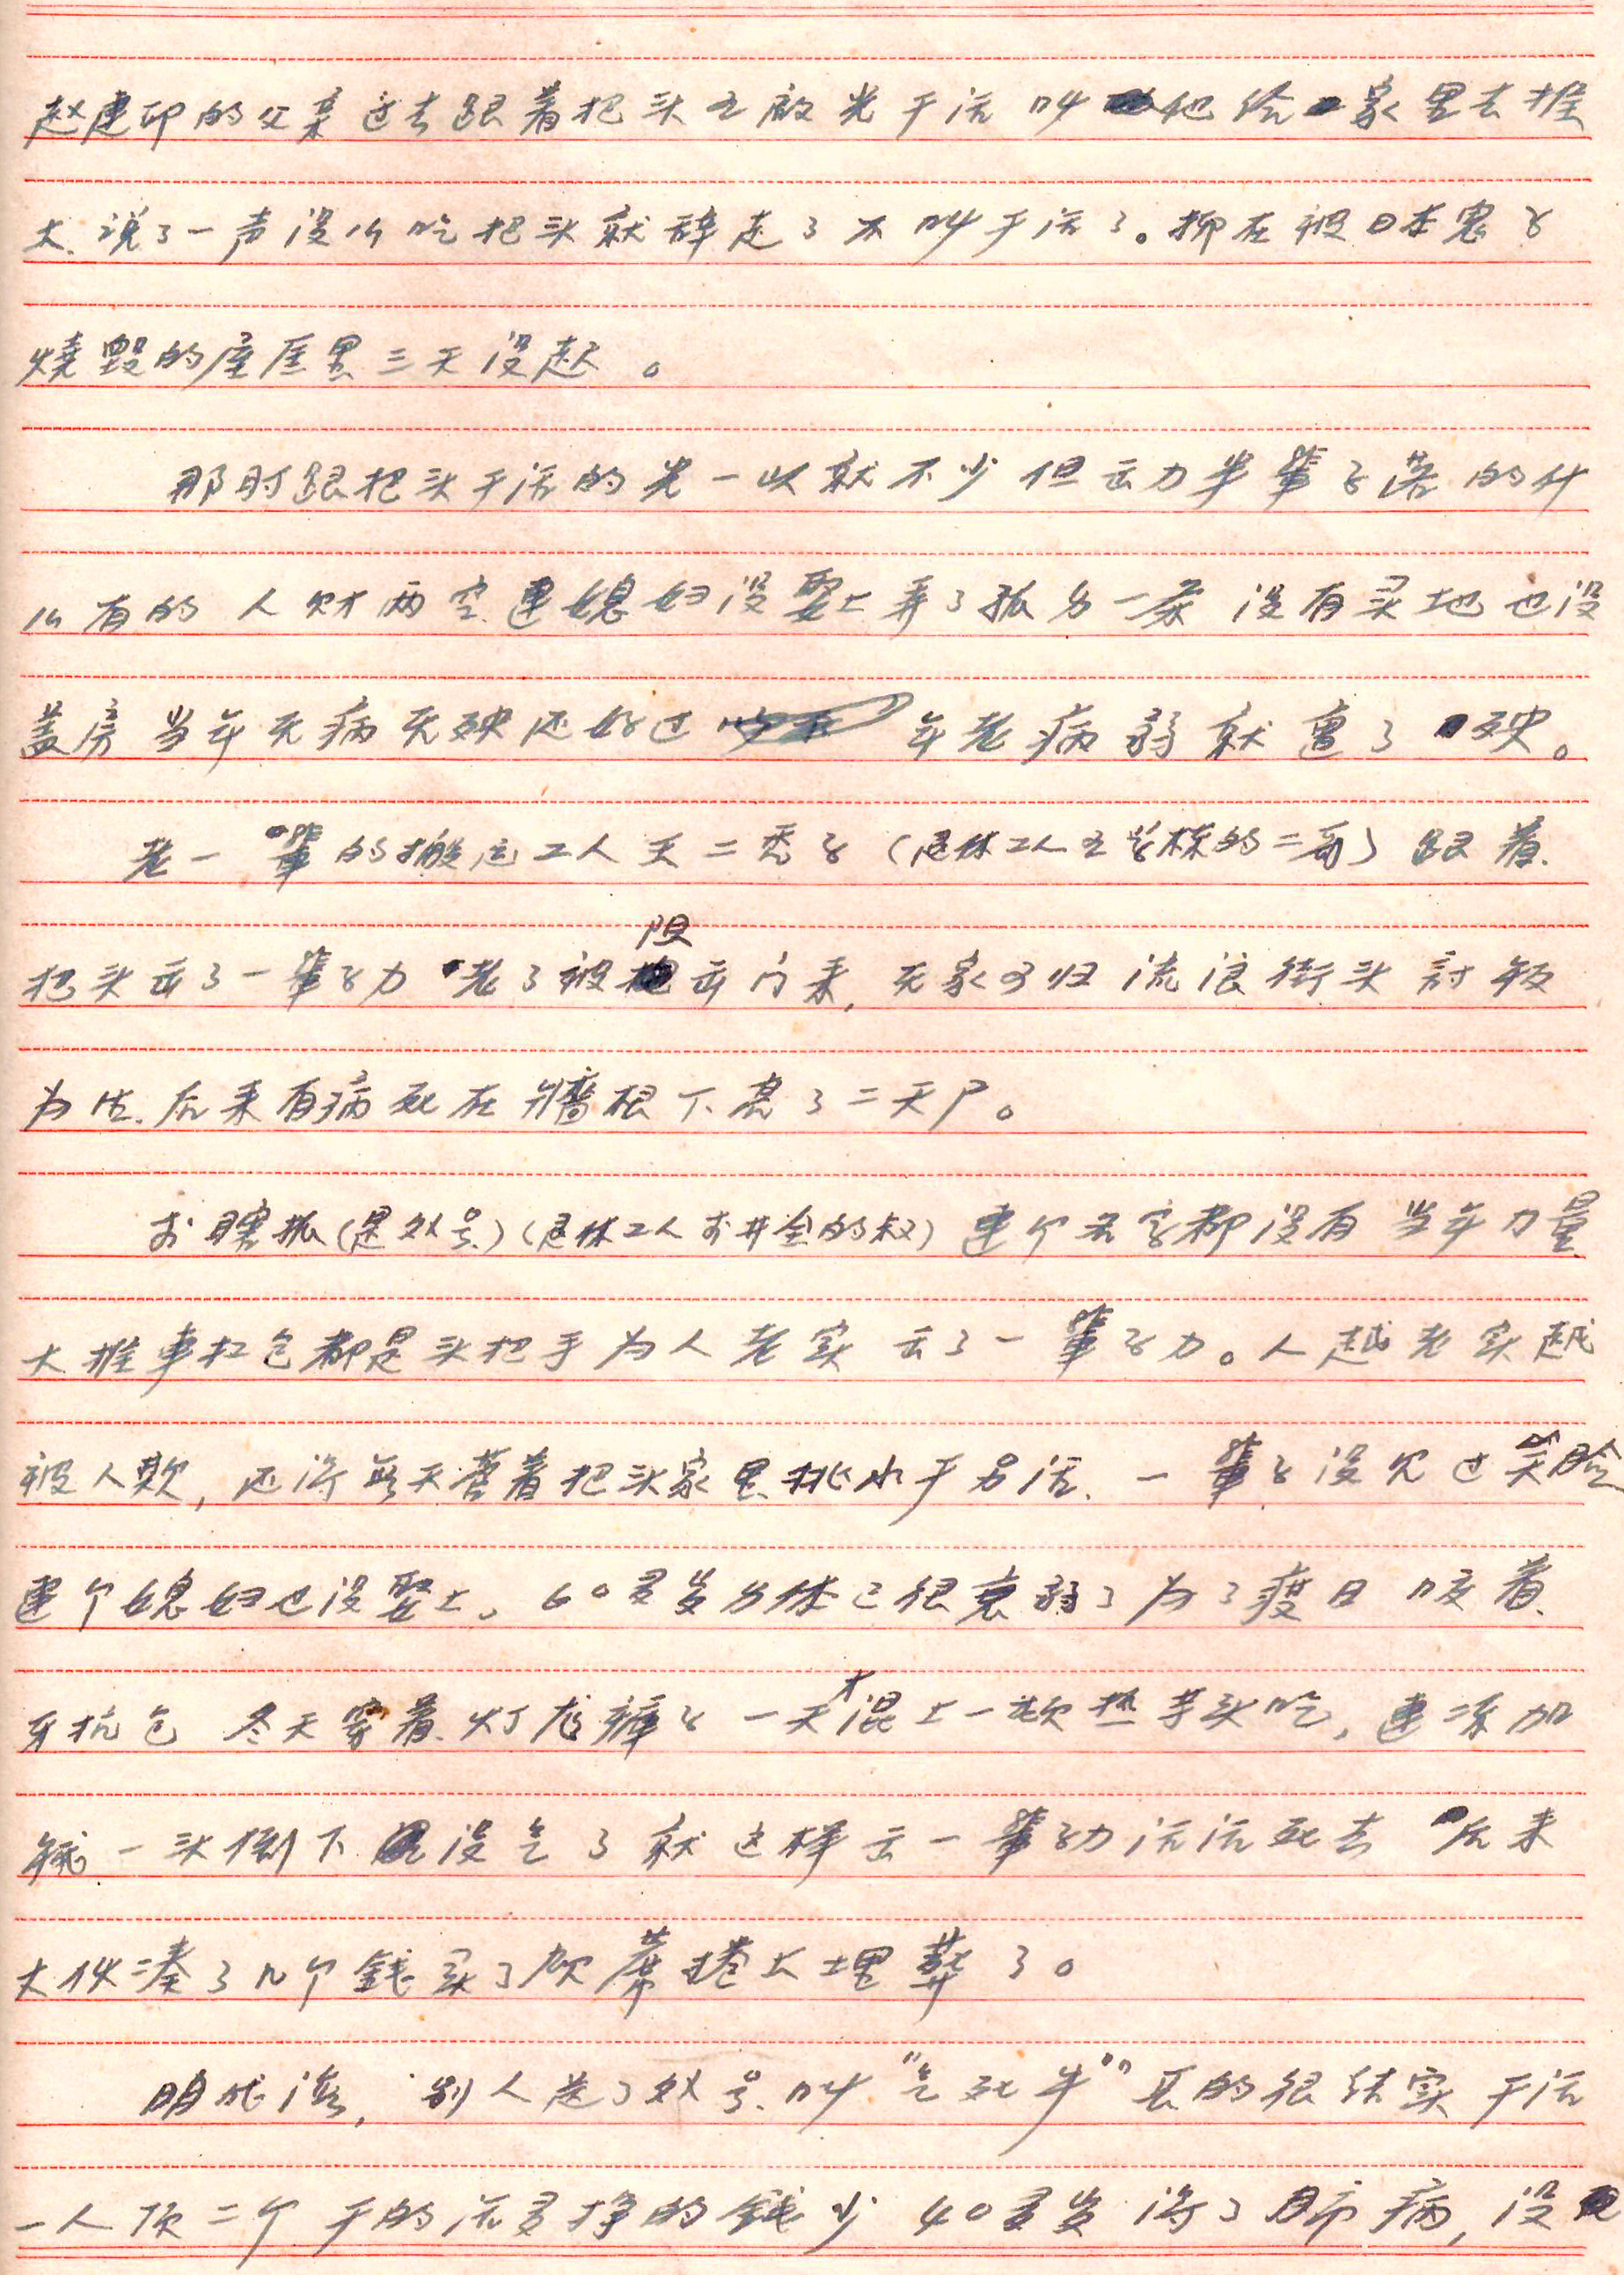 赵建印的父亲过去跟着把头王啟光干活叫他给家里去推
大.说了一声没什吃把头就辞走了不叫干活了。抑在被日本鬼子
燒毀的屋屋里三天没起。
那时跟把头干活的光一说就不少但出力半辈子落的什
么有的人财两空連媳妇没娶上弄了孤身一条没有买地也没
盖房当年无病无殃还好过年老病弱就遭了殃。
老一辈的搬运工人王二秃子(退休工人王学栋的二哥)跟着
把头出了一辈子力老了被阻出门来,无家可归流浪街头討飯
为生.后来有病死在墙根下晃了二天尸。
李瞎抓(是外号)(退休工人李井全的叔)連个名字都没有当年力量
大推車扛包都是头把手为人老实出了一辈子力。人越老实越
被人欺,还得每天营着把头家里挑水干另活.一辈子没见过笑臉
連个媳妇也没娶上。60多岁身体已很衰弱了为了度日咬着
牙抗包冬天穿着灯龙褲子一天才混上一頓热芋头吃,連冻加
餓一头倒下没气了就这样出一辈子力活活死去后来
大伙凑了几个錢买了领蓆捲上埋葬了。
明成海,别人送了外号叫"气死牛"真的很结实干活
一人顶二个干的活多挣的錢少40多岁得了肺病,没